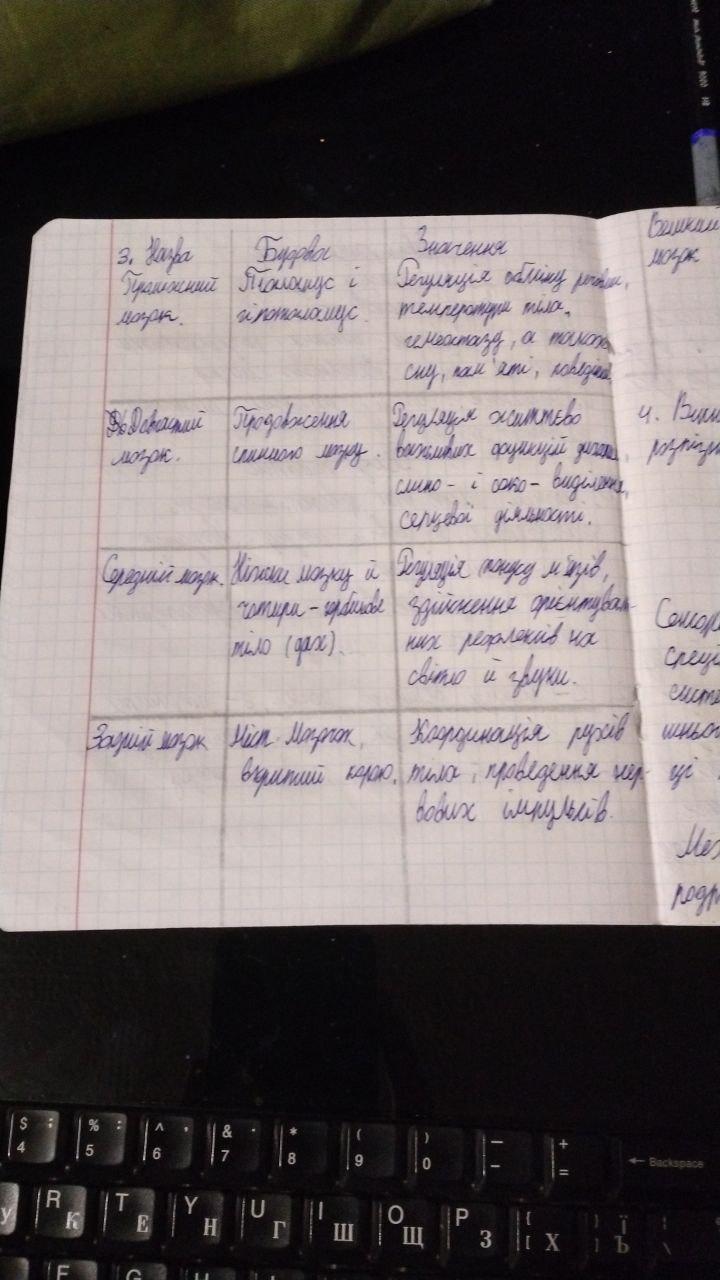 3. Назва Будова Значення
Проміжний мозок. Таламус і гіпоталамус. Регуляція обміну речовин,
температури тіла,
гомеостазу, а також
сну, пам'яті, поведінки
Довгастий мозок. Продовження спинного мозку. Регуляція життєво
важливих функцій дихання,
слино- і соко- виділення,
серцевої діяльності.
Середній мозок. Ніжки мозку й чотири-горбикове тіло (дах). Регуляція тонусу м'язів,
здійснення орієнтуваль-
них рефлексів на
світло й звуки.
Задній мозок Міст. Мозочок, вкритий корою. Координація рухів
тіла, проведення нер-
вових імпульсів.
Великий
мозок
4.
шньог
ці
$ 4
% : 5
^ , 6
& 7
* 8
( 9
) 0
+ =
← Backspace
R К
T Е
Y Н
U Г
I Ш
O Щ
P З
[ Х
] Ъ Ї